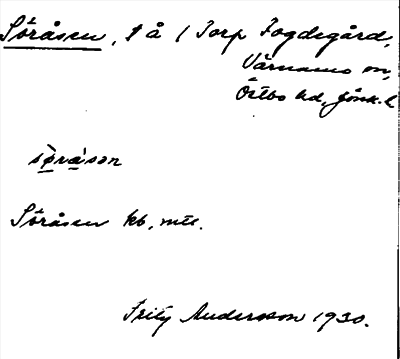 Söråsen, t å / Torp Fogdegård,
Värnamo sn,
Östbo hd, Jönk. l
söråsen
Söråsen kb, mtl.
Frity Andersson 1930.